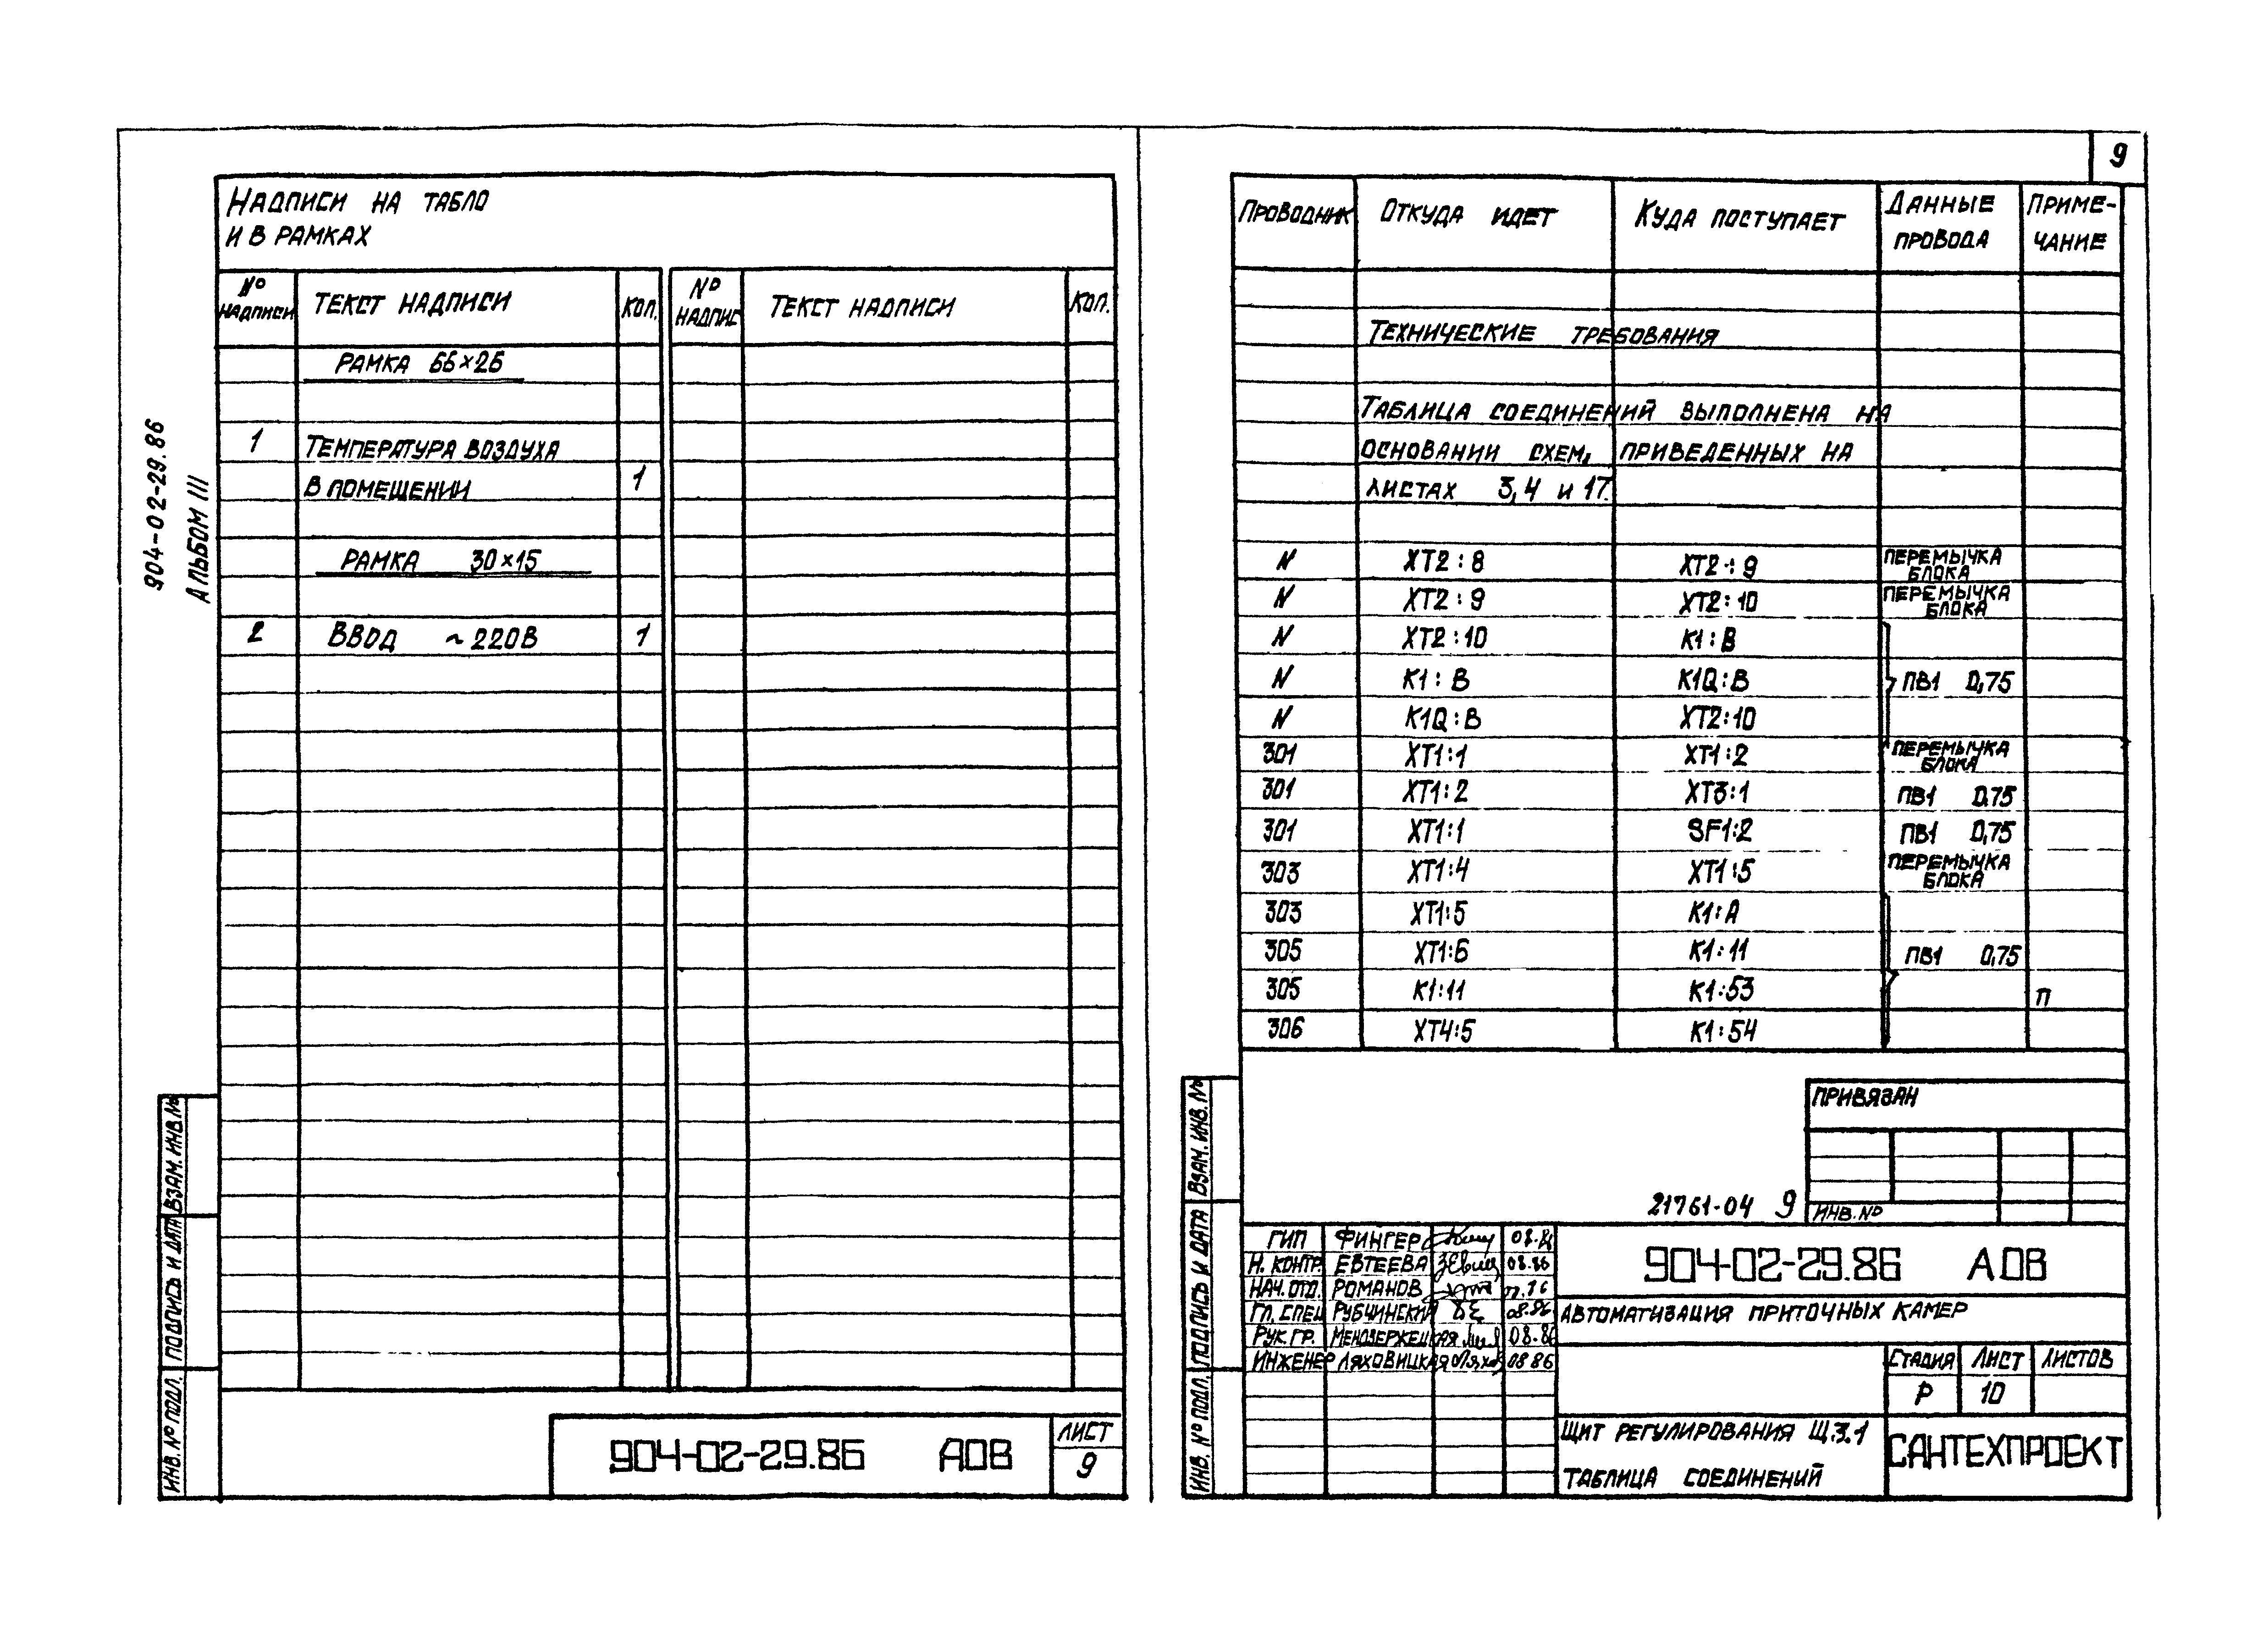 9
904-02-29.86
АЛЬБОМ III
НАДПИСИ НА ТАБЛО
И В РАМКАХ
№ НАДПИСИ ТЕКСТ НАДПИСИ КОЛ. № НАДПИС ТЕКСТ НАДПИСИ КОЛ.
РАМКА 66×26
1 ТЕМПЕРАТУРА ВОЗДУХА
В ПОМЕЩЕНИИ 1
РАМКА 30×15
2 ВВОД ~220В 1
ВЗАМ. ИНВ. №
ПОДПИСЬ И ДАТА
ИНВ. № ПОДЛ.
904-02-29.86 АОВ
ЛИСТ
9
ПРОВОДНИК ОТКУДА ИДЕТ КУДА ПОСТУПАЕТ ДАННЫЕ ПРОВОДА ПРИМЕ-ЧАНИЕ
ТЕХНИЧЕСКИЕ ТРЕБОВАНИЯ
ТАБЛИЦА СОЕДИНЕНИЙ ВЫПОЛНЕНА НА
ОСНОВАНИИ СХЕМ, ПРИВЕДЕННЫХ НА
ЛИСТАХ 3,4 И 17.
N XT2:8 XT2:9 ПЕРЕМЫЧКА БЛОКА
N XT2:9 XT2:10 ПЕРЕМЫЧКА БЛОКА
N XT2:10 K1:В
N K1:В K1Q:В ПВ1 0,75
N K1Q:В XT2:10
301 XT1:1 XT1:2 ПЕРЕМЫЧКА БЛОКА
301 XT1:2 XT3:1 ПВ1 0.75
301 XT1:1 SF1:2 ПВ1 0,75
303 XT1:4 XT1:5 ПЕРЕМЫЧКА БЛОКА
303 XT1:5 K1:А
305 XT1:6 K1:11 ПВ1 0,75
305 K1:11 K1:53 П
306 XT4:5 K1:54
ПРИВЯЗАН
ИНВ. №
21761-04 9
ВЗАМ. ИНВ. №
ПОДПИСЬ И ДАТА
ИНВ. № ПОДЛ.
ГИП ФИНГЕР
Н. КОНТР. ЕВТЕЕВА 08.86
НАЧ. ОТД. РОМАНОВ
ГЛ. СПЕЦ РУБЧИНСКИЙ 08.86
РУК. ГР. МЕНДЗЕРЖЕЦКАЯ 08.86
ИНЖЕНЕР ЛЯХОВИЦКАЯ 08 86
904-02-29.86 АОВ
АВТОМАТИЗАЦИЯ ПРИТОЧНЫХ КАМЕР
СТАДИЯ ЛИСТ ЛИСТОВ
Р 10
ЩИТ РЕГУЛИРОВАНИЯ Щ.3.1
ТАБЛИЦА СОЕДИНЕНИЙ
САНТЕХПРОЕКТ